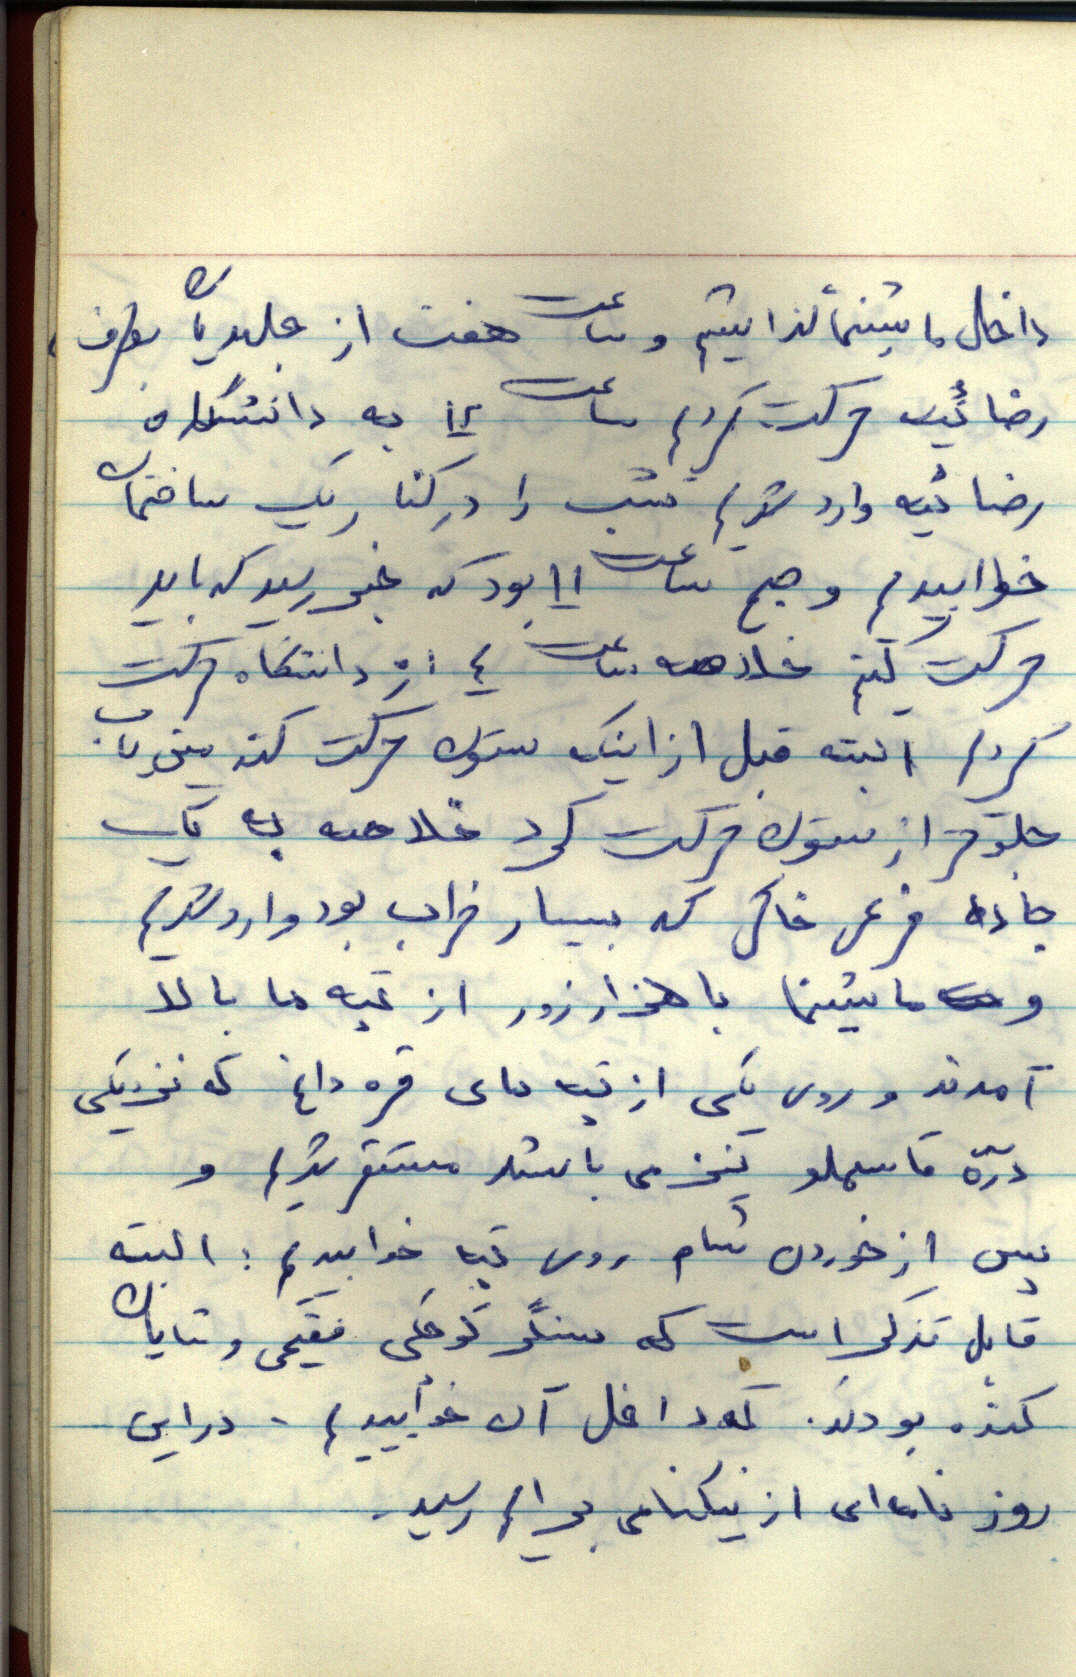 داخل ماشینها گذاشتیم و ساعت هفت از جلدیان بطرف
رضائیه حرکت کردیم ساعت ۱۲ به دانشگاه
رضائیه وارد شدیم شب را در کنار یک ساختمان
خوابیدیم و صبح ساعت ۱۱ بود که خبر رسید که باید
حرکت کنیم خلاصه ساعت ۴ از دانشگاه حرکت
کردیم البته قبل از اینکه ستون حرکت کند
جلوتر از ستون حرکت کرد خلاصه به یک
جاده فرعی خاکی که بسیار خراب بود وارد شدیم
و ماشینها با هزار زور از تپه ها بالا
آمدند و روی یکی از تپه های قره داغ که نزدیکی
درّه قاسملو می باشد مستقر شدیم و
پس از خوردن شام روی تپه خوابیدیم : البته
قابل تذکر است که سنگر کوچکی فیقیمی و شایان
کنده بودند. که داخل آن خوابیدیم - در این
روز نامه ای از نیکنامی برایم رسید.